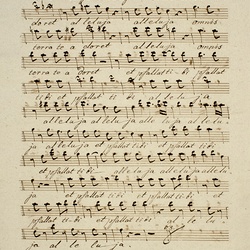 doret alleluja alleluja omnis
terra te adoret alleluja omnis
terra te adoret et psallat ti-bi psallat
et psallat ti-bi al le lu ja
alleluja allelu ja alle lu ja al le lu-
ja et psallat tibi et psallat
et psallat tibi alleluja alleluja
et psallat tibi et psallat tibi
psallat tibi et psallat tibi al le lu
ja al le lu ja.